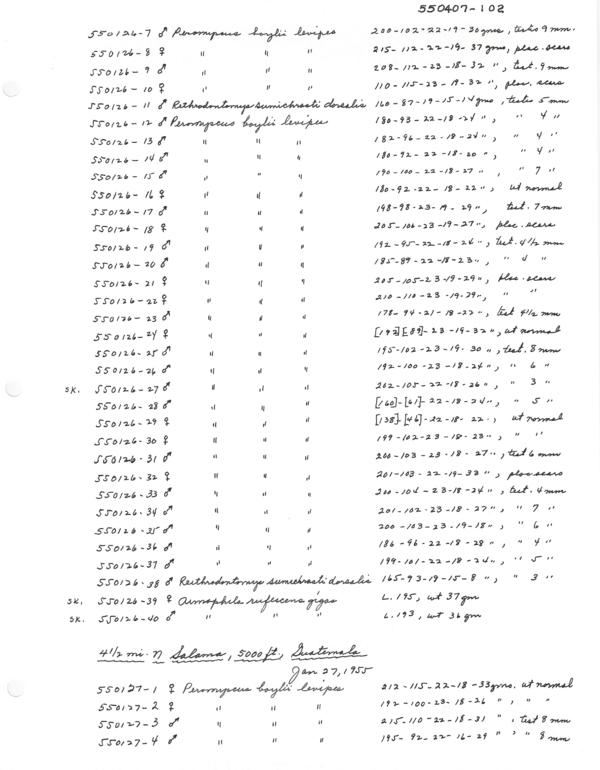 550407-102
550126-7 ♂ Peromyscus boylii levipes 200-102-22-19-30gms, testis 9 mm.
550126-8 ♀ " " " 215-112-22-19-37 gms, plac. scars
550126-9 ♂ " " " 208-112-23-18-32 ", test. 9 mm
550126-10 ♀ " " " 110-115-23-19-32 ", plac. scars
550126-11 ♂ Reithrodontomys sumichrasti dorsalis 160-87-19-15-14 gms, testis 5 mm
550126-12 ♂ Peromyscus boylii levipes 180-93-22-18-24 ", " 4 "
550126-13 ♂ " " " 182-96-22-18-24 ", " 4 "
550126-14 ♂ " " " 180-92-22-18-20 ", " 4 "
550126-15 ♂ " " " 190-100-22-18-27 ", " 7 "
550126-16 ♀ " " " 180-92-22-18-22 ", ut normal
550126-17 ♂ " " " 198-98-23-19-29 ", test. 7 mm
550126-18 ♀ " " " 205-106-23-19-27 ", plac. scars
550126-19 ♂ " " " 192-95-22-18-26 ", test. 4 1/2 mm
550126-20 ♂ " " " 185-89-22-18-23 ", " 4 "
550126-21 ♀ " " " 205-105-23-19-29 ", plac. scars
550126-22 ♀ " " " 210-110-23-19-29 ", " "
550126-23 ♂ " " " 178-94-21-18-22 ", test 4 1/2 mm
550126-24 ♀ " " " [192][89]-23-19-32 ", ut normal
550126-25 ♂ " " " 195-102-23-19-30 ", test. 8 mm
550126-26 ♂ " " " 192-100-23-18-24 ", " 6 "
SK. 550126-27 ♂ " " " 202-105-22-18-26 ", " 3 "
550126-28 ♂ " " " [160]-[61]-22-18-24 ", " 5 "
550126-29 ♀ " " " [138]-[46]-22-18-22 ", ut normal
550126-30 ♀ " " " 199-102-23-18-23 ", " "
550126-31 ♂ " " " 200-103-23-18-27 ", test 6 mm
550126-32 ♀ " " " 201-103-22-19-33 ", plac scars
550126-33 ♂ " " " 200-104-23-18-24 ", test. 4 mm
550126-34 ♂ " " " 201-102-23-18-27 ", " 7 "
550126-35 ♂ " " " 200-103-23-19-18 ", " 6 "
550126-36 ♂ " " " 186-96-22-18-28 ", " 4 "
550126-37 ♂ " " " 199-101-22-18-24 ", " 5 "
550126-38 ♂ Reithrodontomys sumichrasti dorsalis 165-93-19-15-8 ", " 3 "
SK. 550126-39 ♀ Aimophila rufescens gigas L. 195, wt 37 gm
SK. 550126-40 ♂ " " " L. 193, wt 36 gm
4 1/2 mi. N Salama, 5000 ft., Guatemala
Jan 27, 1955
550127-1 ♀ Peromyscus boylii levipes 212-115-22-18-33gms. ut normal
550127-2 ♀ " " " 192-100-23-18-26 ", " "
550127-3 ♂ " " " 215-110-22-18-31 ", test 8 mm
550127-4 ♂ " " " 195-92-22-16-29 " " " 8 mm